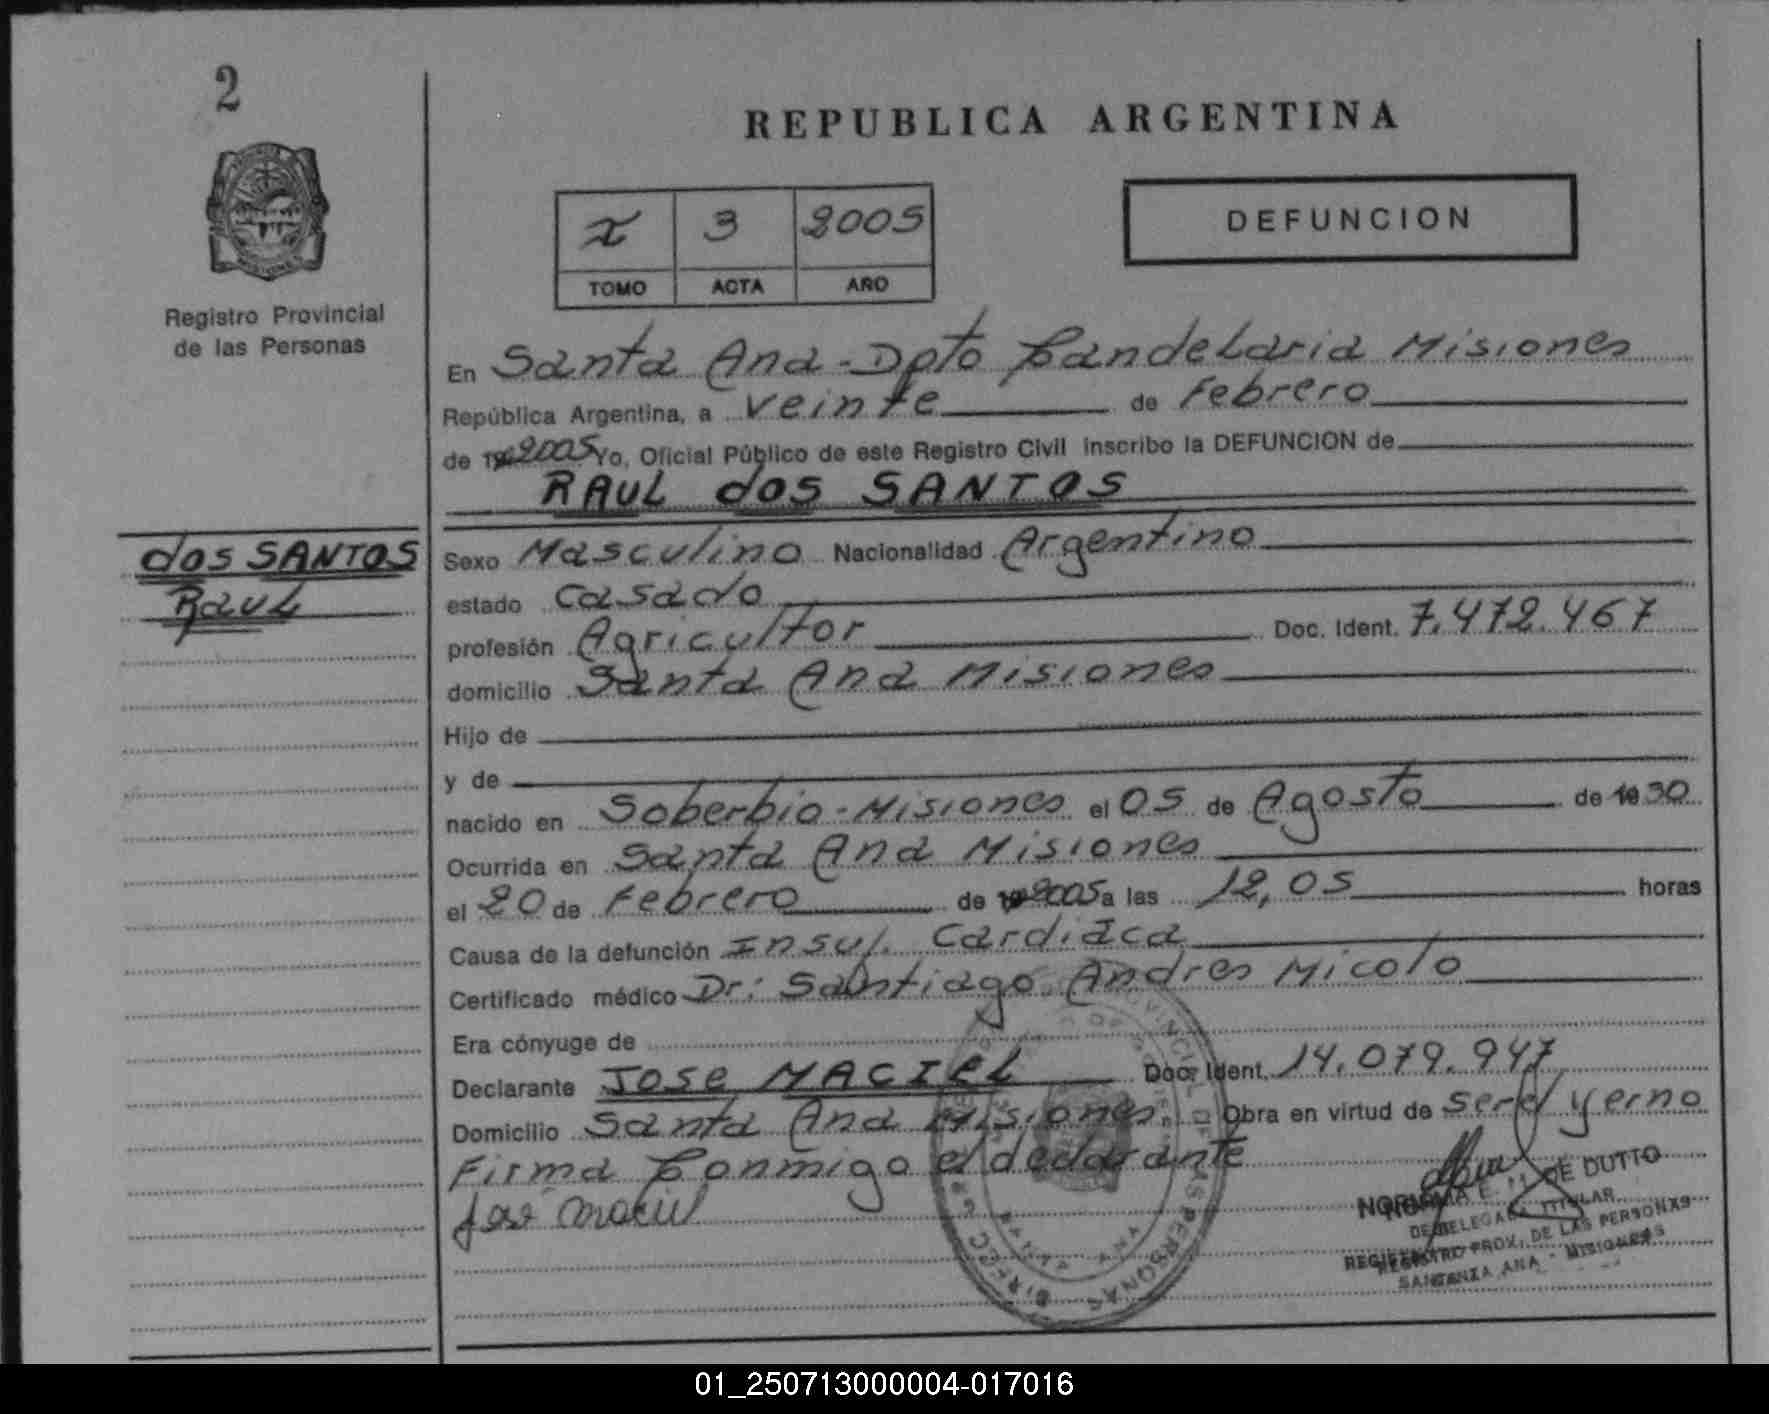 2
REPUBLICA ARGENTINA
3 2005
TOMO ACTA AÑO
DEFUNCION
Registro Provincial
de las Personas
En Santa Ana - Dpto Candelaria Misiones
República Argentina, a veinte de Febrero
de 19 2005 Yo, Oficial Público de este Registro Civil inscribo la DEFUNCION de
RAUL dos SANTOS
dos SANTOS
Raul
Sexo Masculino Nacionalidad Argentino
estado Casado
profesión Agricultor Doc. Ident. 7.472.467
domicilio Santa Ana Misiones
Hijo de
y de
nacido en Soberbio - Misiones el 05 de Agosto de 1930
Ocurrida en Santa Ana Misiones
el 20 de Febrero de 19 2005 a las 12,05 horas
Causa de la defunción Insuf. Cardiaca
Certificado médico Dr: Santiago Andres Micolo
Era cónyuge de
Declarante Jose MACIEL Doc. Ident. 14.079.947
Domicilio Santa Ana Misiones Obra en virtud de ser el yerno
Firma Conmigo el declarante
José Maciel
NORMA E. DE DUTTO
DELEGADA TITULAR
REGISTRO PROV. DE LAS PERSONAS
SANTA ANA - MISIONES
SANTA ANA
01_250713000004-017016